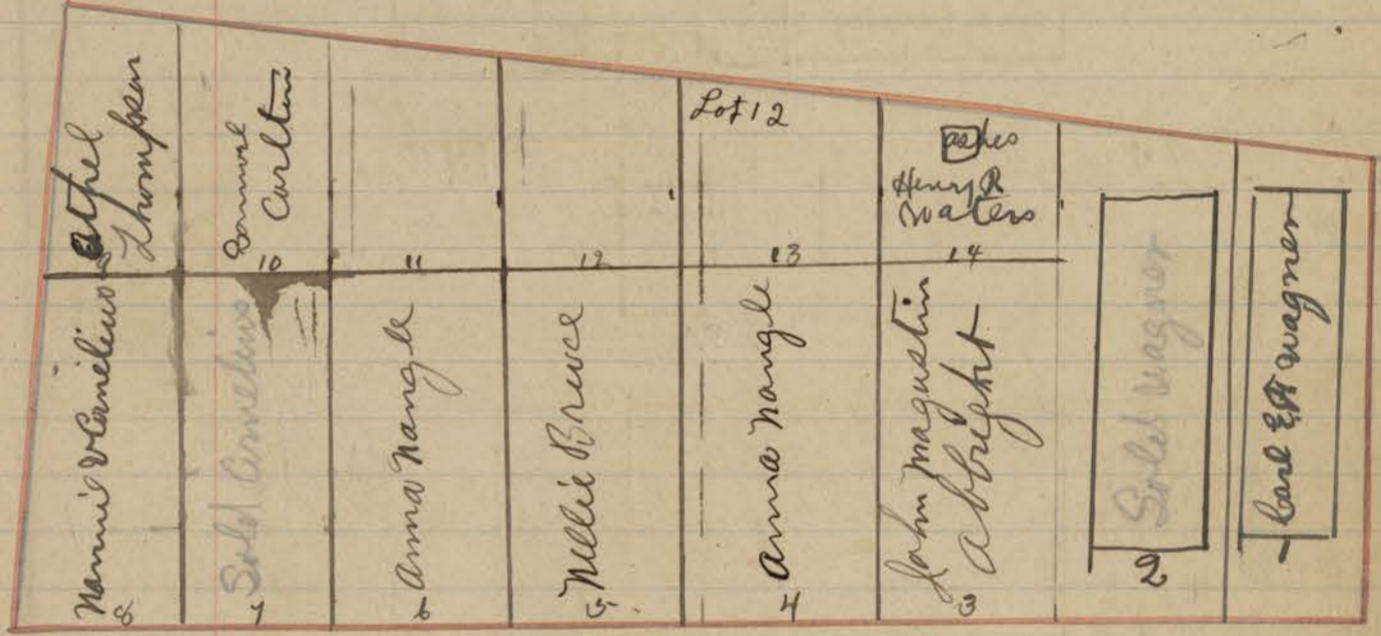 Ethel
Thompson
Carlton
10
11
12
Lot 12
13
ashes
Henry R
Waters
14
Nannie Cornelius
8
Sold Cornelius
7
Anna Nangle
6
Nellie Bruce
5
Anna Nangle
4
John Magustin
Abbright
3
Sold Wagner
2
Carl Wagner
1